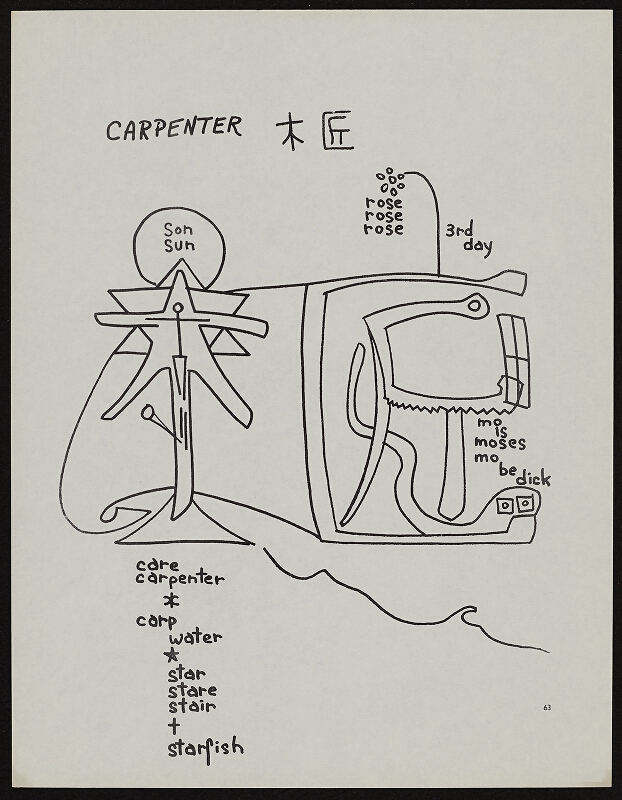 CARPENTER 木匠
Son
Sun
rose
rose
rose
3rd
day
mo
is
moses
mo
be
dick
care
carpenter
*
carp
water
★
star
stare
stair
†
starfish
63